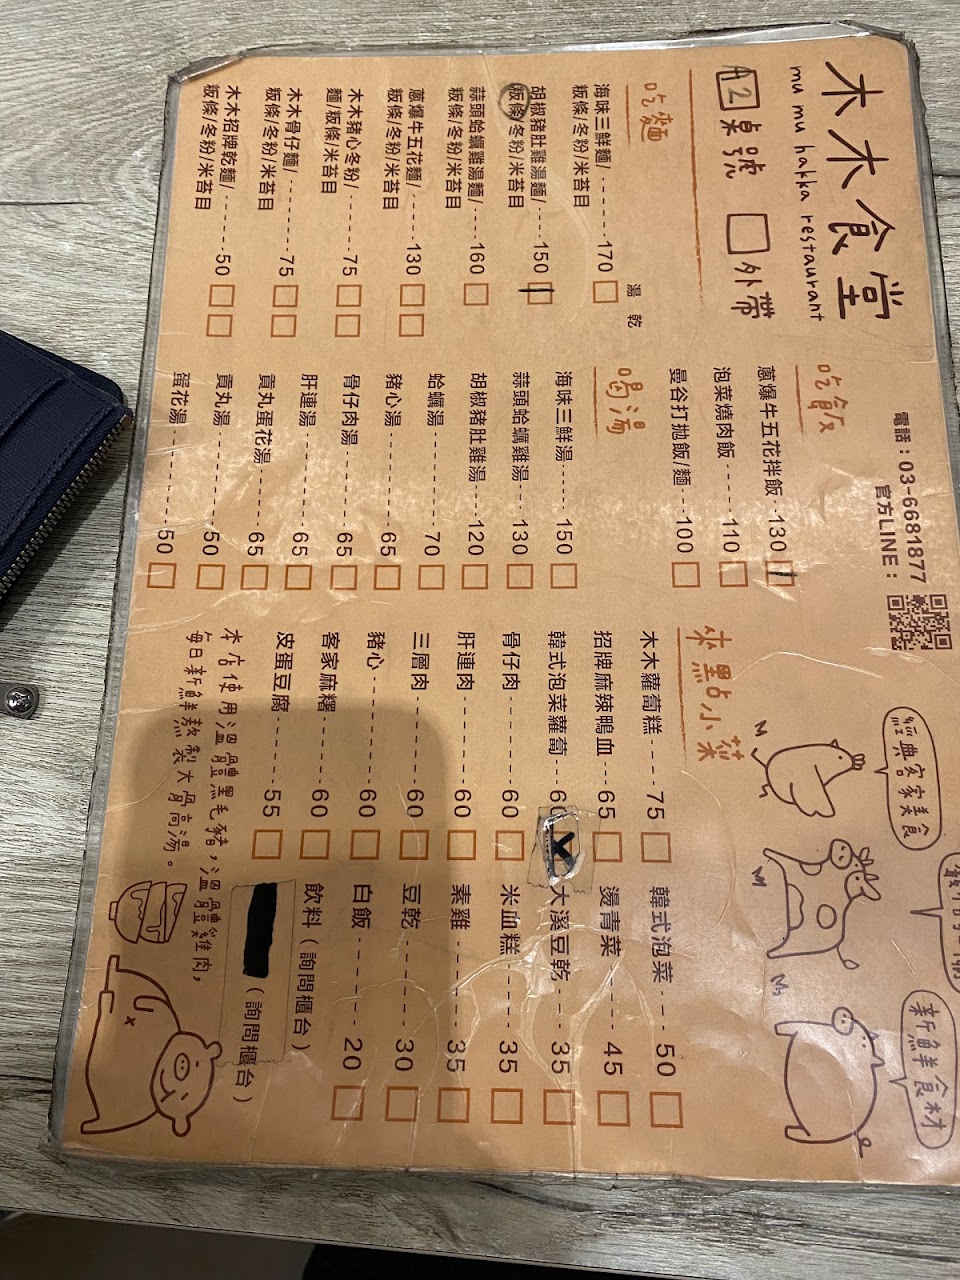 木木食堂
mu mu hakka restaurant
電話：03-6681877
官方LINE：
12 桌號 外帶
經典客家美食
新鮮食材
吃麵
湯 乾
海味三鮮麵/------170
粄條/冬粉/米苔目
胡椒豬肚雞湯麵/----150
粄條/冬粉/米苔目
蒜頭蛤蠣雞湯麵/----160
粄條/冬粉/米苔目
蔥爆牛五花麵/-----130
粄條/冬粉/米苔目
木木豬心冬粉/------75
麵/粄條/米苔目
木木骨仔麵/-------75
粄條/冬粉/米苔目
木木招牌乾麵/------50
粄條/冬粉/米苔目
吃飯
蔥爆牛五花拌飯--130
泡菜燒肉飯-----110
曼谷打拋飯/麵---100
喝湯
海味三鮮湯-----150
蒜頭蛤蠣雞湯---130
胡椒豬肚雞湯---120
蛤蠣湯--------70
豬心湯--------65
骨仔肉湯------65
肝連湯--------65
貢丸蛋花湯----65
貢丸湯--------50
蛋花湯--------50
來點小菜
木木蘿蔔糕----75
招牌麻辣鴨血--65
韓式泡菜蘿蔔--60
骨仔肉-------60
肝連肉-------60
三層肉-------60
豬心---------60
客家麻糬-----60
皮蛋豆腐-----55
韓式泡菜----50
燙青菜------45
大溪豆乾----35
米血糕------35
素雞--------35
豆乾--------30
白飯--------20
飲料（詢問櫃台）
（詢問櫃台）
本店使用溫體黑毛豬，溫體雞肉，
每日新鮮熬製大骨高湯。